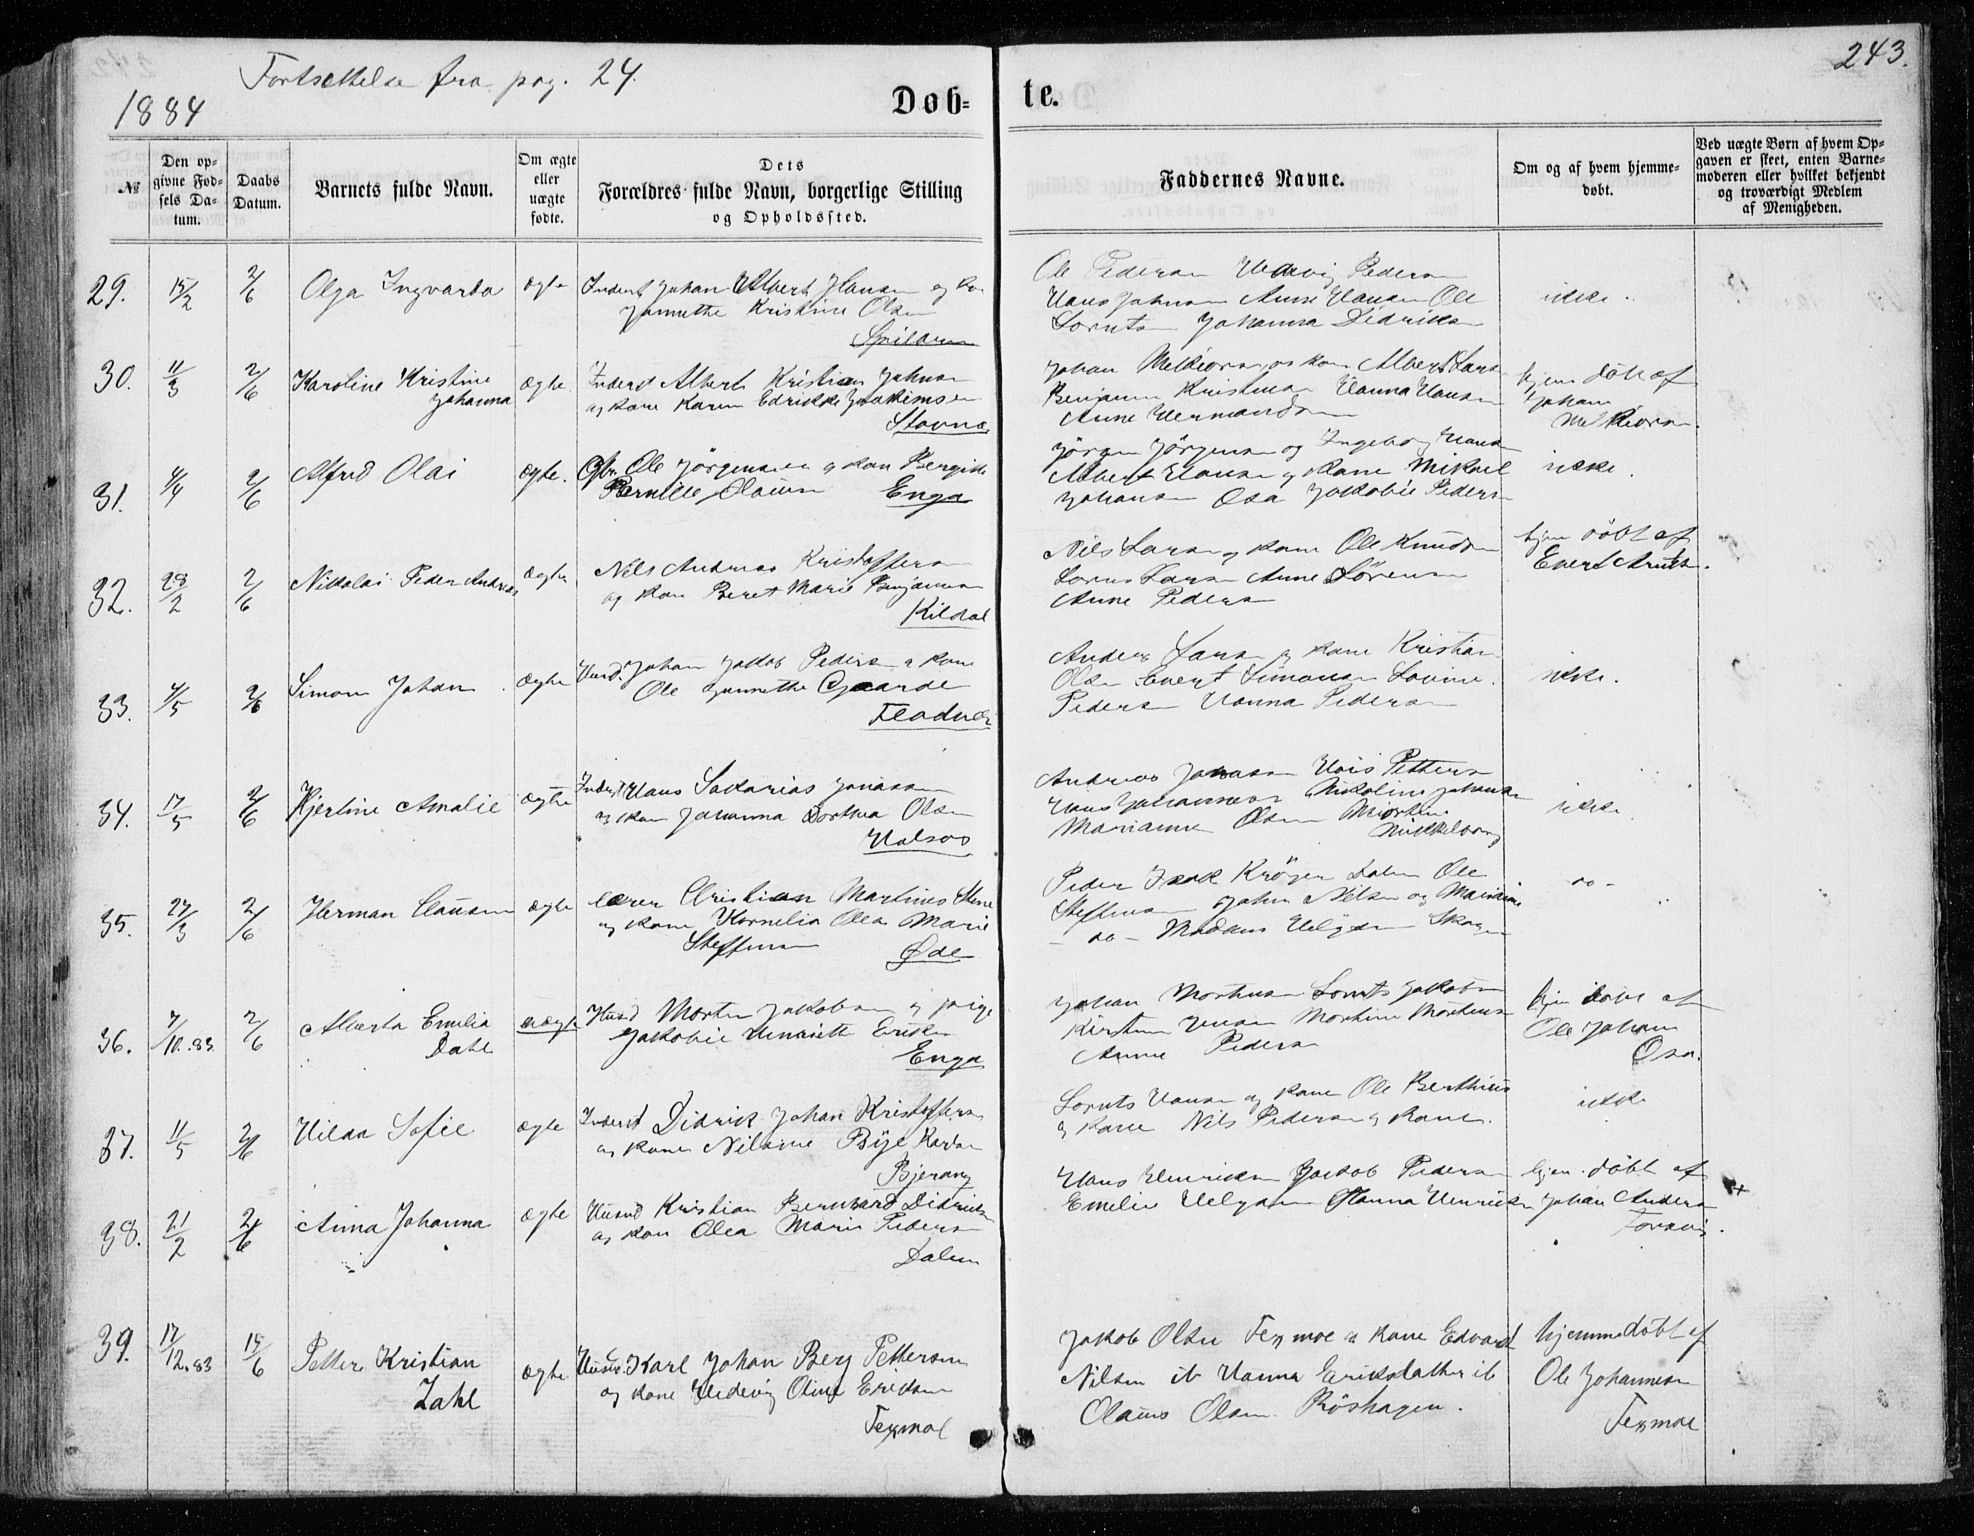 Fortsættelse fra pag. 24.
243.
1884
Døb-
te.
№
Den op-
givne Fød-
sels Da-
tum.
Daabs
Datum.
Barnets fulde Navn.
Om ægte
eller
uægte
fødte.
Dets
Forældres fulde Navn, borgerlige Stilling
og Opholdssted.
Faddernes Navne.
Om og af hvem hjemme-
døbt.
Ved uægte Børn af hvem Op-
gaven er skeet, enten Barne-
moderen eller hvilket bekjendt
og troværdigt Medlem
af Menigheden.
29. 15/2 2/6 Olga Ingvarda ægte
Inderst Johan Albert Hansen og
Kristine Olsen
Spildern
Ole Pedersen Hedvig Pedersen
Hans Johnsen Anne Hansen Ole
Lorntsen Johanna Didriksen
ikke.
30. 11/3 2/6 Karoline Kristine
Johanna
ægte
Inderst Albert Kristian Johnsen
og Kone Karen Edrikke Joakimsen
Stavnes
Johan Melkiorsen og kone Albert Larsen
Benjamin Kristensen Hanna Hansen
Anne Hermandsen
hjem døbt af
Johan
Melkiorsen.
31. 4/4 2/6 Alfred Olai ægte.
Gbr. Ole Jörgensen og kone Bergitte
Pernille Olausen Enga
Jörgen Jörgensen og Ingeborg Hansen
Albert Hansen og Kone Mikael
Johansen Osa Jakobie Pedersen
ikke.
32. 28/2 2/6 Nikolai Peder Andreas ægte
Nils Andreas Kristoffersen
og kone Beret Marie Benjaminsen
Kildal
Nils Larsen og kone Ole Knudsen
Lorns Larsen Anne Sörensen
Anne Pedersen
hjem döbt af
Evert Arntsen.
33. 4/5 2/6 Simon Johan ægte
Husd. Johan Jakob Pedersen og kone
Ole Gaarde
Fladvær
Anders Larsen og kone Kristian
Olsen Evert Simonsen Lovine
Pedersen Hanna Pedersen
ikke.
34. 17/5 2/6 Hjertine Amalie ægte
Inderst Hans Sakarias Jonassen
og kone Johanna Dorthea Olsen
Halsos
Andreas Jonassen Petters
Hans Johannesen Nikoline Johansen
Marianne Olsen
ikke.
35. 27/3 2/6 Herman Clausen ægte
Lærer Christian Martinus Stene
og kone Kornelia Olea Marie
Steffensen Øde
Peder Isak Kröger Dalen Ole
Steffensen John Nilsen og
- do - Helgesen Skagen
do -
36. 7/10.83. 2/6 Alberta Emilia
Dahl
uægte
Husd Morten Jakobsen og pige
Jakobie Henriette Eriksen
Enga
Johan Mortensen Lornts Jakobsen
Kirsten Jensen Martine Mortensen
Anne Pedersen
hjem döbt af
Ole Johan
Osa.
37. 11/5 2/6 Hilda Sofie ægte
Inderst Didrik Johan Kristoffersen
og kone Nilsine Bye Karlsen
Bjerang
Lornts Hansen og kone Ole Berthius
og kone Nils Pedersen og kone.
ikke
38. 21/2 2/6 Anna Johanna ægte
Husmd Kristian Bernhard Didriksen
og kone Olea Marie Pedersen
Dalen
Hans Henriksen Jakob Pedersen
Emelie Helgesen Hanna Henriksen
hjem. döbt af
Johan Andersen
Forsvig.
39. 17/12.83 15/6 Petter Kristian
Zahl
ægte
Husmd. Karl Johan Berg Pettersen
og kone Hedevig Oline Eriksen
Texmoe
Jakob Olsen Texmoe og kone Edvard
Nilsen ib Hanna Eriksdatter ib
Olaus Olsen Röshagen.
hjemmedöbt af
Ole Johannesen
Texmoe